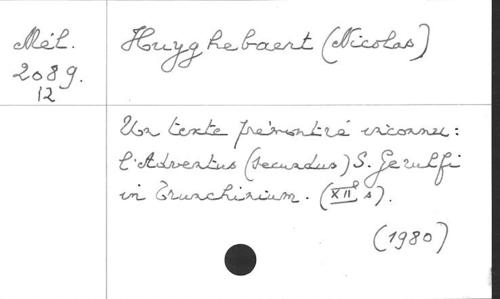 Mél.
2089.
12
Huyghebaert (Nicolas)
Un texte prémontré inconnu:
l'Adventus (secundus) S. Gerulfi
in Trunchinium. (XIIe s).
(1980)